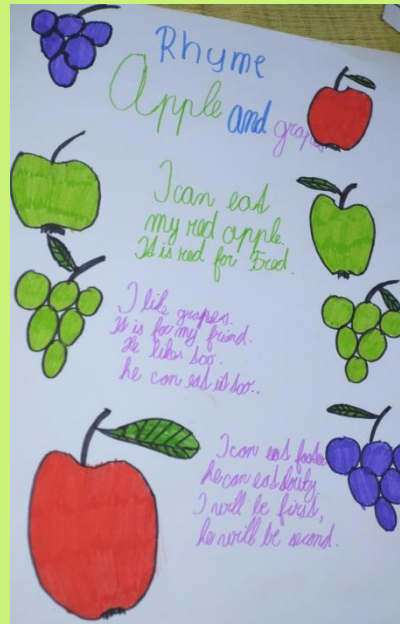 Rhyme
Apple and grapes
I can eat
my red apple.
It is red for Fred.
I like grapes.
It is for my friend.
He likes too.
he can eat it too.
I can eat faster
he can eat slowly
I will be first,
he will be second.